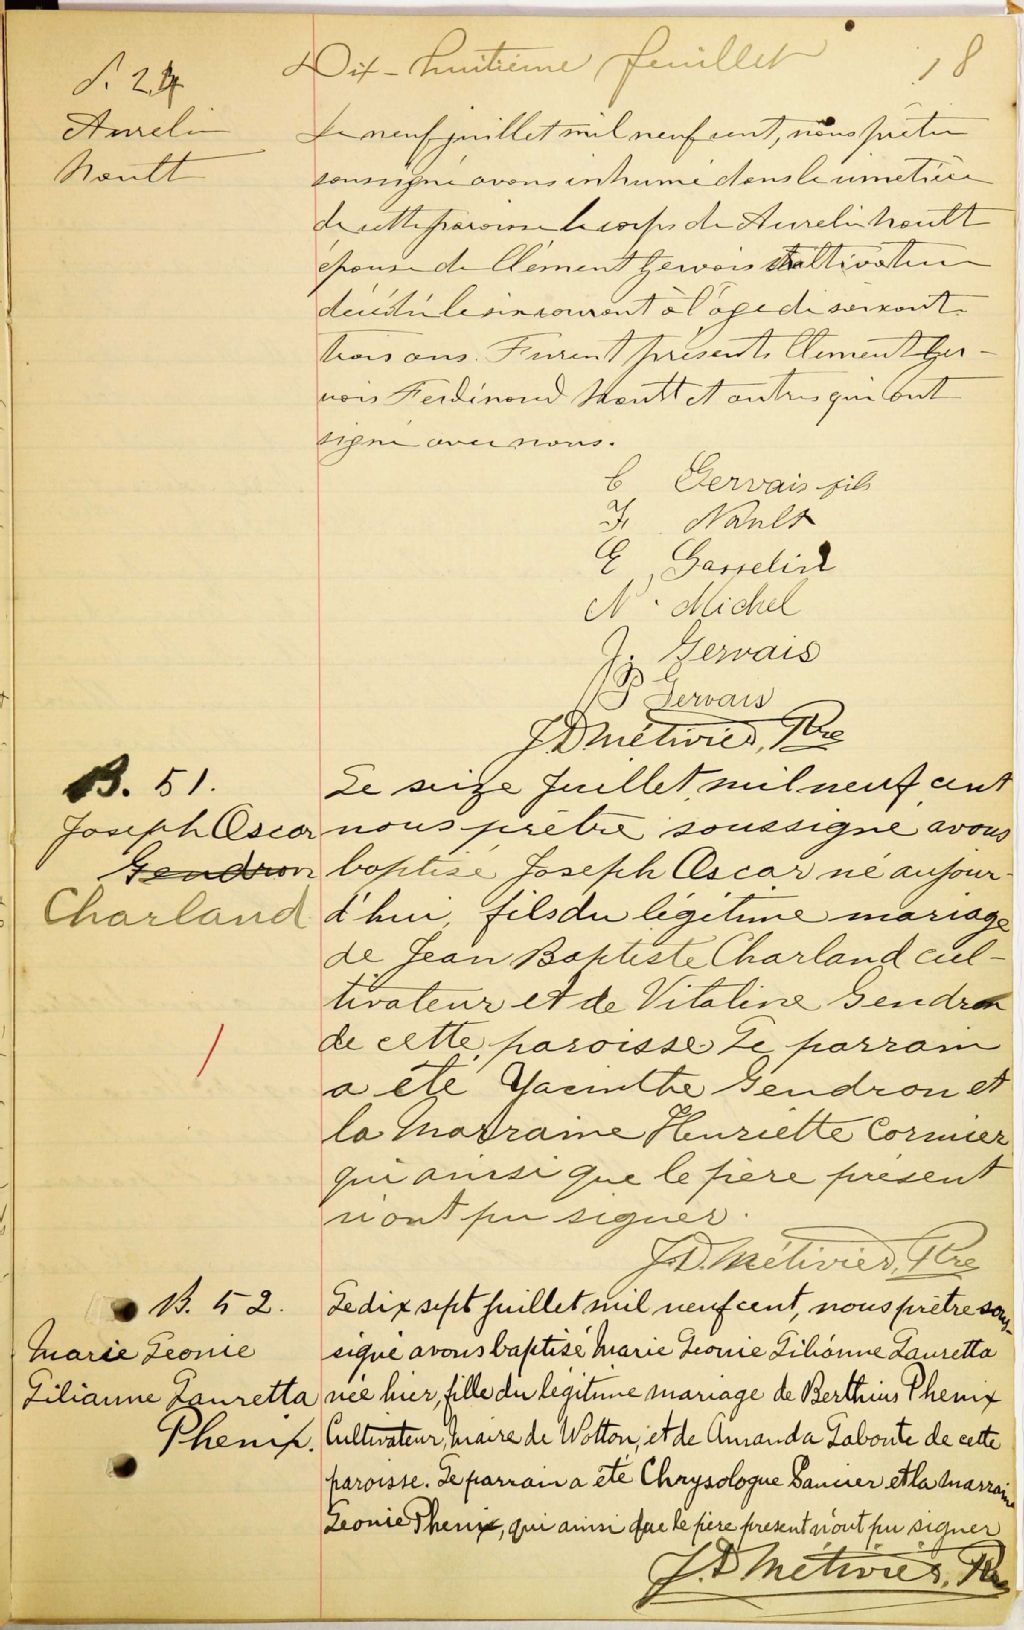 Dix-huitième feuillet 18
S. 24
Aurelie
Noult
Le neuf juillet mil neuf cent, nous prêtre
soussigné avons inhumé dans le cimetière
de cette paroisse le corps de Aurelie Noult
épouse de Clément Gervais cultivateur
décédée le six courant à l'âge de soixante
trois ans. Furent présents Clement Ger-
vais Ferdinand Noult et autres qui ont
signé avec nous.
C Gervais fils
F. Nault
E Gosselin
N. Michel
J. Gervais
J P Gervais
J.D. Métivier, Ptre
B. 51.
Joseph Oscar
Gendron
Charland
Le seize Juillet mil neuf cent
nous prêtre soussigné avons
baptisé Joseph Oscar né aujour-
d'hui, fils du légitime mariage
de Jean Baptiste Charland cul-
tivateur et de Vitaline Gendron
de cette paroisse Le parrain
a été Yacinthe Gendron et
la Marraine Henriette Cormier
qui ainsi que le père présent
n'ont pu signer.
J.D. Métivier, Ptre
B. 52.
Marie Leonie
Lilianne Lauretta
Phenix.
Le dix sept Juillet mil neuf cent, nous prêtre sous-
signé avons baptisé Marie Leonie Lilianne Lauretta
née hier, fille du légitime mariage de Berthius Phenix
Cultivateur, Maire de Wotton, et de Amanda Labonte de cette
paroisse. Le parrain a été Chrysologue Saucier et la marraine
Leonie Phenix, qui ainsi que le père present n'ont pu signer
J.D Métivier, Ptre